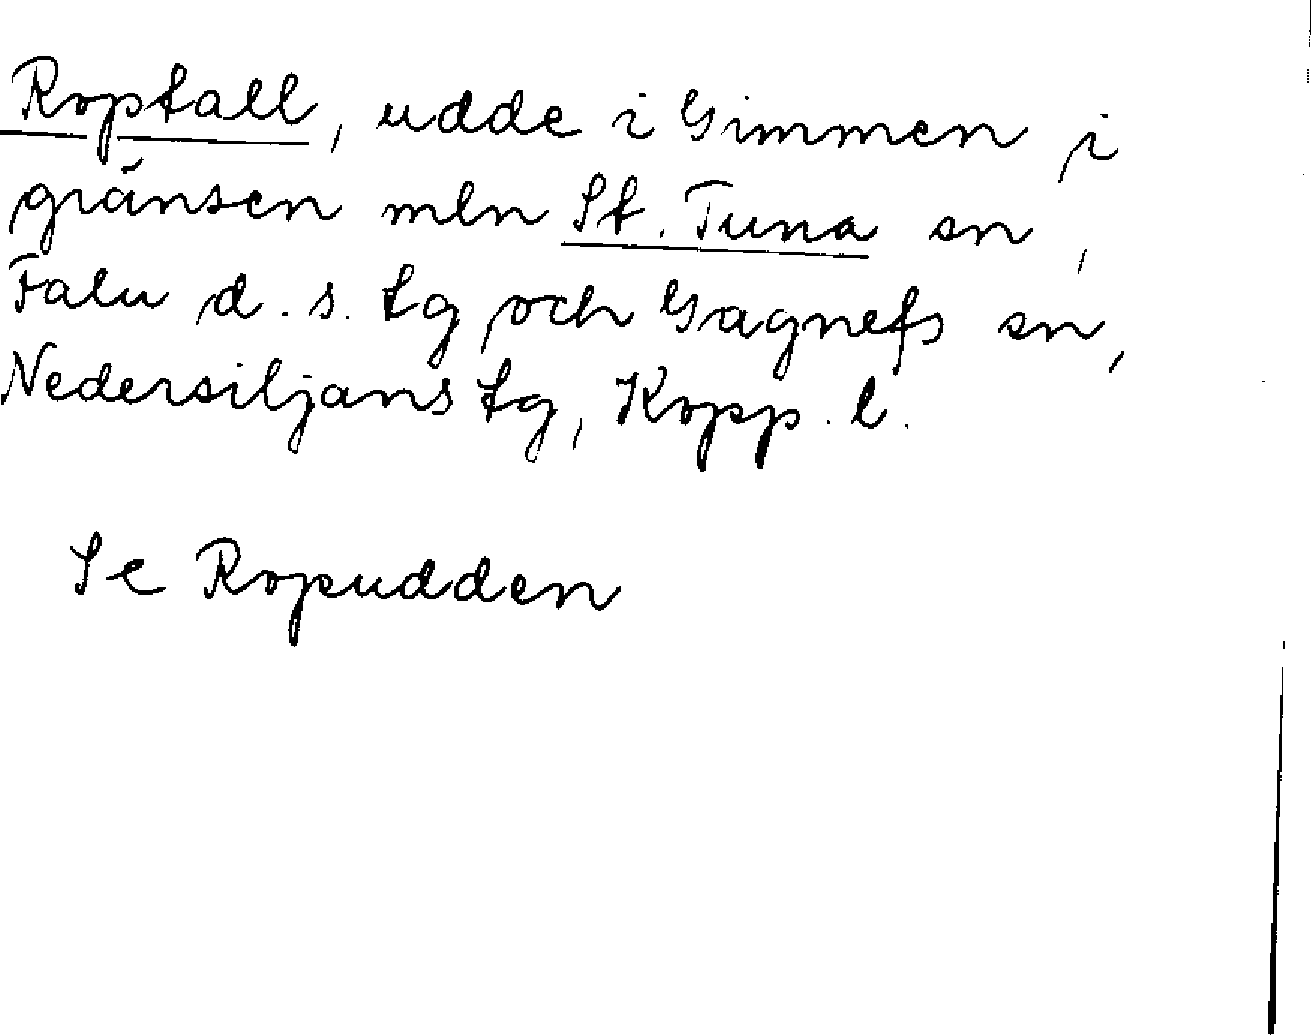 Roptall, udde i Gimmen i
gränsen mln St. Tuna sn,
Falu d. s. tg och Gagnefs sn,
Nedersiljans tg, Kopp. l.
Se Ropudden